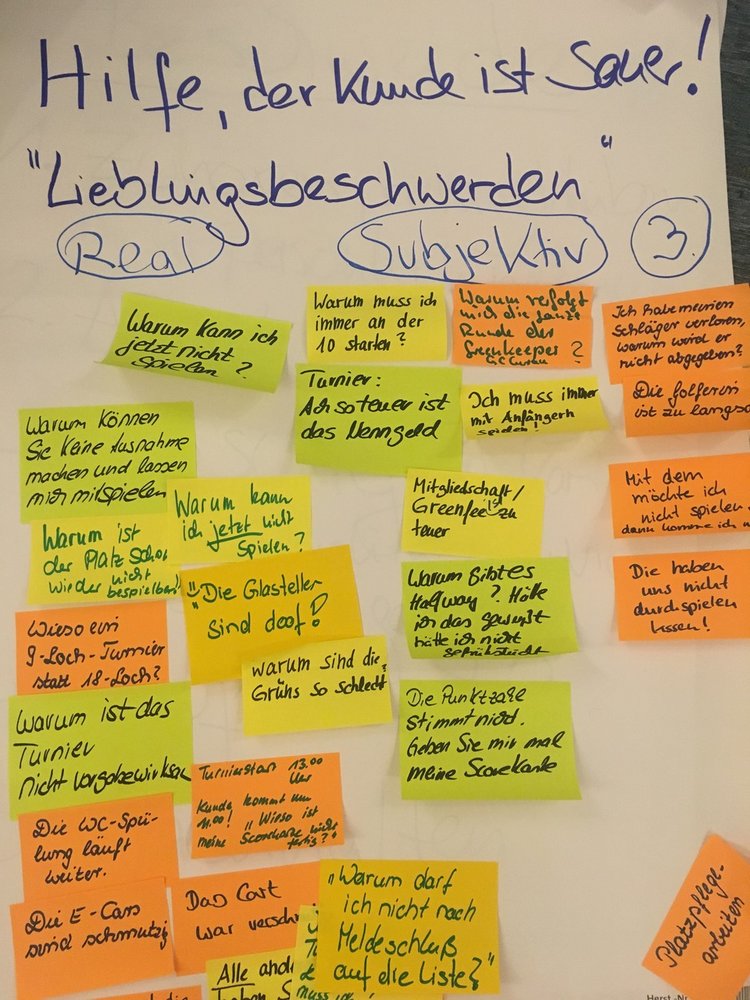 Hilfe, der Kunde ist Sauer!
"Lieblingsbeschwerden"
Real
Subjektiv
3.
Warum kann ich
jetzt nicht
spielen?
Warum muss ich
immer an der
10 starten?
Warum verfolgt
mich die ganze
Runde der
Greenkeeper?
Ich habe meinen
Schläger verloren,
warum wird er
nicht abgegeben?
Turnier:
Ach so teuer ist
das Nenngeld
Ich muss immer
mit Anfängern
spielen!
Die Golferin
ist zu langsa
Warum können
Sie keine Ausnahme
machen und lassen
mich mitspielen
Warum kann
ich jetzt nicht
spielen?
Mitgliedschaft/
Greenfee ist zu
teuer
Mit dem
möchte ich
nicht spielen
dann komme ich n
Warum ist
der Platz schon
wieder nicht
bespielbar?
"Die Glasteller
sind doof!"
Warum gibt es
Halfway? Hätte
ich das gewußt
hätte ich nicht
gefrühstückt
Die haben
uns nicht
durchspielen
lassen!
Wieso ein
9-Loch-Turnier
statt 18-Loch?
warum sind die
Grüns so schlecht?
Warum ist das
Turnier
nicht vorgabewirksam
Die Punktzahl
stimmt nicht.
Geben Sie mir mal
meine Scorekarte
Turnierstart 13.00
Uhr
Kunde kommt um
11.00! "Wieso ist
meine Scorekarte nicht
fertig?"
Die WC-Spü-
lung läuft
weiter.
Die E-Cars
sind schmutzig
Das Cart
war verschm
"Warum darf
ich nicht nach
Meldeschluß
auf die Liste?"
Alle and
haben S
Platzpflege-
arbeiten